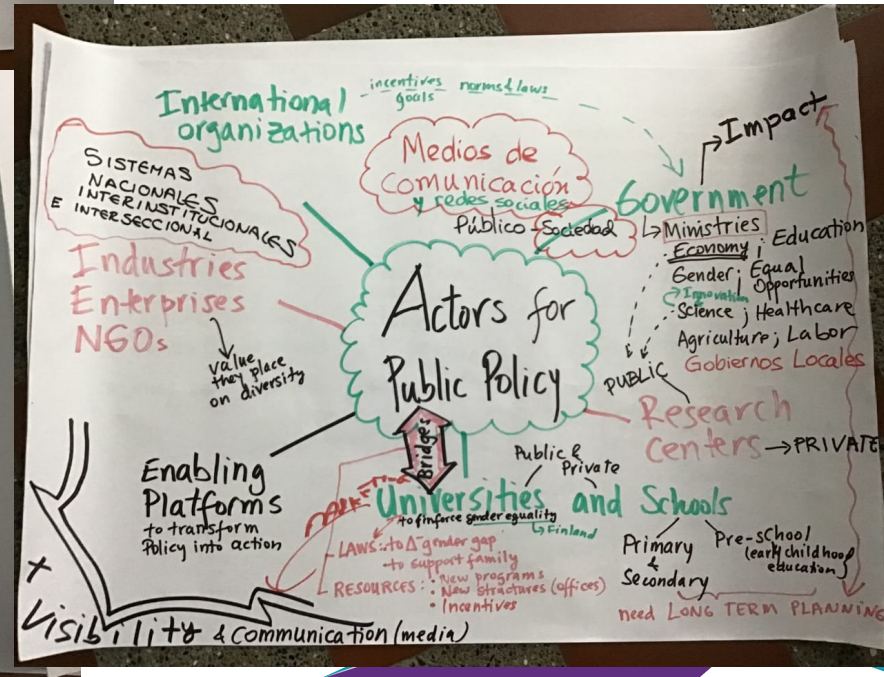 International
organizations
incentives
goals
norms & laws
SISTEMAS
NACIONALES
INTERINSTITUCIONALES
E INTERSECCIONAL
Medios de
comunicación
y redes sociales
Público - Sociedad
Impact
Government
Ministries
Economy ; Education
Gender ; Equal
Opportunities
Innovation
Science ; Healthcare
Agriculture ; Labor
Gobiernos Locales
Industries
Enterprises
NGOs
value
they place
on diversity
Actors for
Public Policy
Bridges
PUBLIC
Research
Centers → PRIVATE
Enabling
Platforms
to transform
Policy into action
Public &
Private
Universities and Schools
to finforce gender equality
Finland
LAWS: to Δ gender gap
to support family
RESOURCES: • New programs
• New structures (offices)
• Incentives
Primary
&
Secondary
Pre-school
(early childhood
education)
need LONG TERM PLANNING
+
Visibility & communication (media)